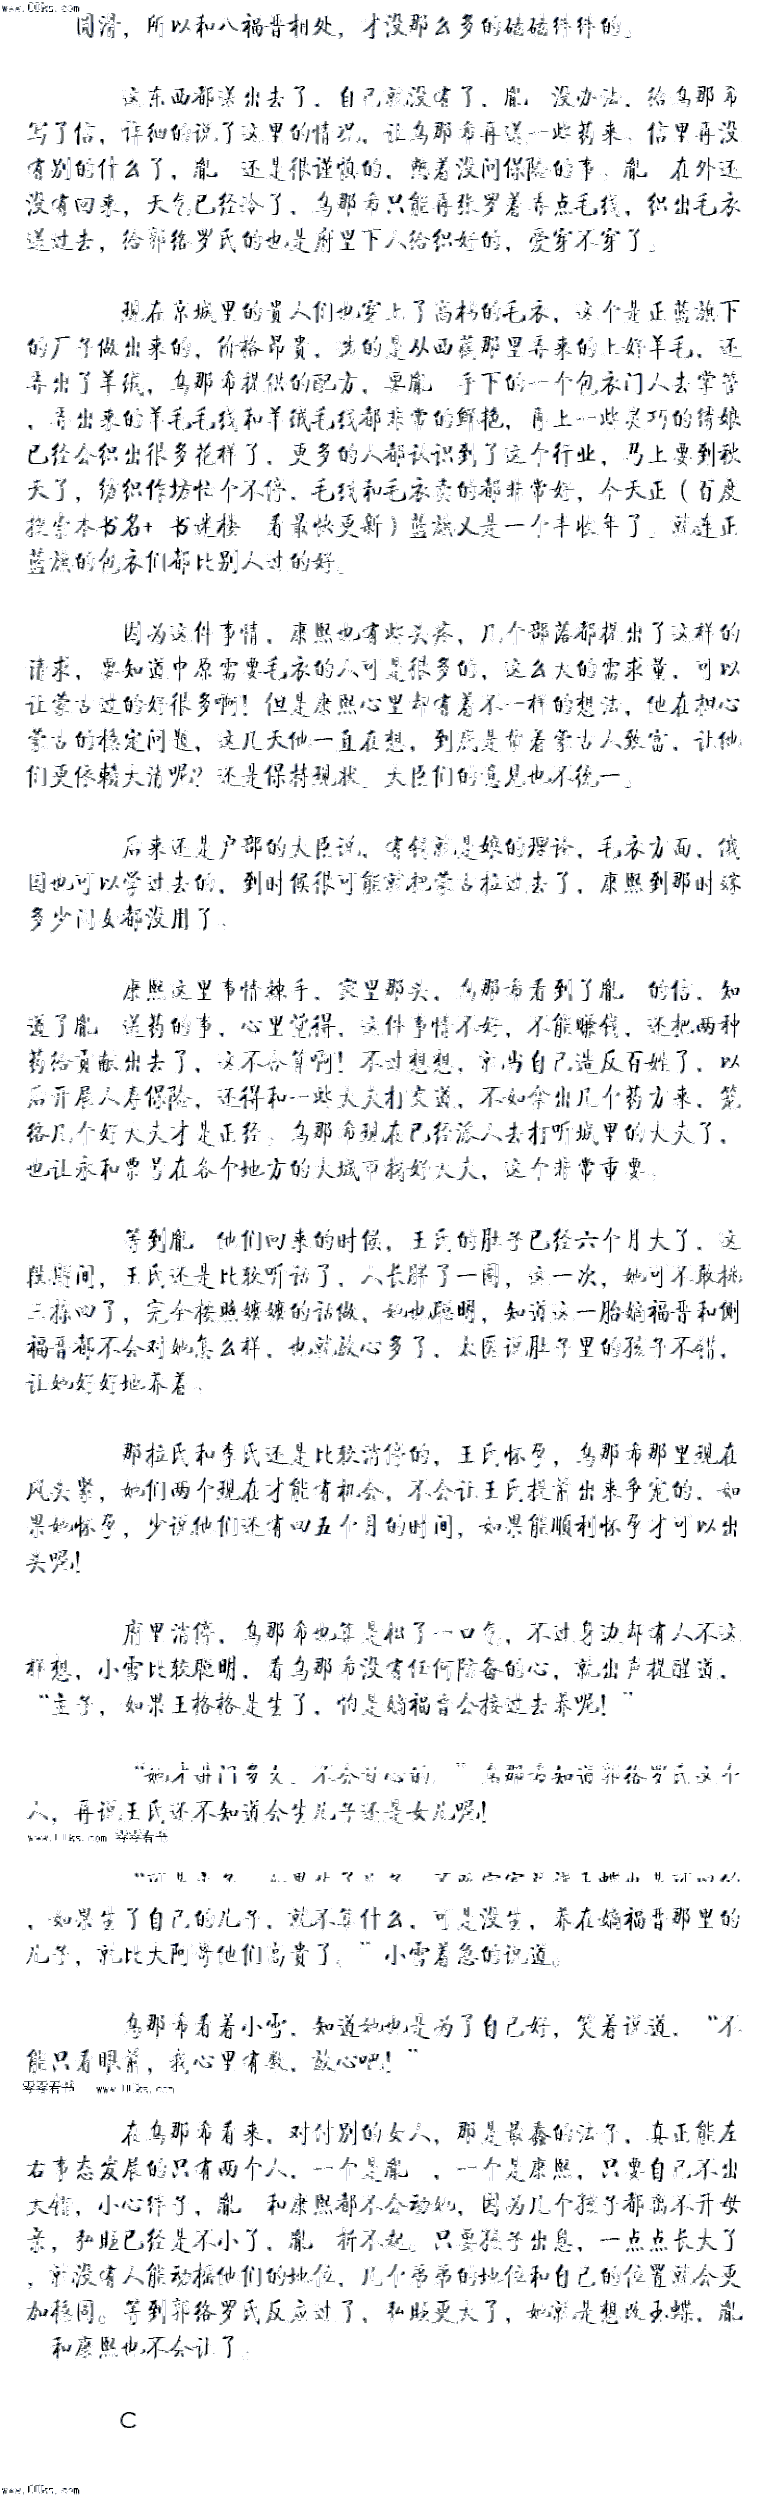 www.00ks.com
圆滑，所以和八福晋相处，才没那么多的磕磕绊绊的。
这东西都送出去了，自己就没有了，胤 没办法，给乌那希
写了信，详细的说了这里的情况，让乌那希再送一些药来，信里再没
有别的什么了，胤 还是很谨慎的，憋着没问保险的事，胤 在外还
没有回来，天气已经冷了，乌那希只能再张罗着弄点毛线，织出毛衣
送过去，给郭络罗氏的也是府里下人给织好的，爱穿不穿了。
现在京城里的贵人们也穿上了高档的毛衣，这个是正蓝旗下
的厂子做出来的，价格昂贵，选的是从西藏那里弄来的上好羊毛，还
弄出了羊绒，乌那希提供的配方，要胤 手下的一个包衣门人去掌管
，弄出来的羊毛毛线和羊绒毛线都非常的鲜艳，再上一些灵巧的绣娘
已经会织出很多花样了，更多的人都认识到了这个行业，马上要到秋
天了，纺织作坊忙个不停，毛线和毛衣卖的都非常好，今天正（百度
搜索本书名+ 书迷楼 看最快更新）蓝旗又是一个丰收年了，就连正
蓝旗的包衣们都比别人过的好。
因为这件事情，康熙也有些头疼，几个部落都提出了这样的
请求，要知道中原需要毛衣的人可是很多的，这么大的需求量，可以
让蒙古过的好很多啊！但是康熙心里却有着不一样的想法，他在担心
蒙古的稳定问题，这几天他一直在想，到底是带着蒙古人致富，让他
们更依赖大清呢？还是保持现状，大臣们的意见也不统一。
后来还是户部的大臣说，有钱就是娘的理论，毛衣方面，俄
国也可以学过去的，到时候很可能就把蒙古拉过去了，康熙到那时嫁
多少闺女都没用了。
康熙这里事情棘手，家里那头，乌那希看到了胤 的信，知
道了胤 送药的事，心里觉得，这件事情不好，不能赚钱，还把两种
药给贡献出去了，这不合算啊！不过想想，就当自己造反百姓了，以
后开展人寿保险，还得和一些大夫打交道，不如拿出几个药方来，笼
络几个好大夫才是正经，乌那希现在已经派人去打听城里的大夫了，
也让永和票号在各个地方的大城市找好大夫，这个非常重要。
等到胤 他们回来的时候，王氏的肚子已经六个月大了，这
段期间，王氏还是比较听话了，人长胖了一圈，这一次，她可不敢挑
三拣四了，完全按照嬷嬷的话做，她也聪明，知道这一胎嫡福晋和侧
福晋都不会对她怎么样，也就放心多了，太医说肚子里的孩子不错，
让她好好地养着。
那拉氏和李氏还是比较消停的，王氏怀孕，乌那希那里现在
风头紧，她们两个现在才能有机会，不会让王氏提前出来争宠的，如
果她怀孕，少说他们还有四五个月的时间，如果能顺利怀孕才可以出
头呢！
府里消停，乌那希也算是松了一口气，不过身边却有人不这
样想，小雪比较聪明，看乌那希没有任何防备的心，就出声提醒道，
“主子，如果王格格是生了，怕是嫡福晋会接过去养呢！”
“她才进门多久，不会甘心的。”乌那希知道郭络罗氏这个
人，再说王氏还不知道会生儿子还是女儿呢！
www.00ks.com 零零看书
，如果生了自己的儿子，就不算什么，可是没生，养在嫡福晋那里的
儿子，就比大阿哥他们高贵了。”小雪着急的说道。
乌那希看着小雪，知道她也是为了自己好，笑着说道，“不
能只看眼前，我心里有数，放心吧！”
零零看书 www.00ks.com
在乌那希看来，对付别的女人，那是最蠢的法子，真正能左
右事态发展的只有两个人，一个是胤 ，一个是康熙，只要自己不出
大错，小心行事，胤 和康熙都不会动她，因为几个孩子都离不开母
亲，弘晅已经是不小了，胤 折不起，只要孩子出息，一点点长大了
，就没有人能动摇他们的地位，几个弟弟的地位和自己的位置就会更
加稳固。等到郭络罗氏反应过了，弘晅更大了，她就是想改玉蝶，胤
和康熙也不会让了。
C
www.00ks.com